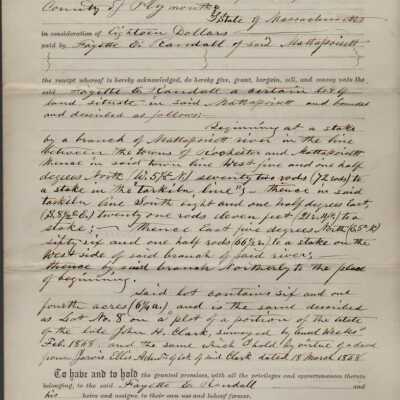 County of Plymouth State of Massachusetts
in consideration of Eighteen Dollars
paid by Fayette E. Randall of said Mattapoisett
the receipt whereof is hereby acknowledged, do hereby give, grant, bargain, sell, and convey unto the
said Fayette E. Randall a certain lot of
land situate in said Mattapoisett and bounded
and described as follows:
Beginning at a stake
by a branch of Mattapoisett river in the line
between the towns of Rochester and Mattapoisett
thence in said town line West five and one half
degrees North seventy two rods (72 rods) to
a stake in the "tarkiln line"; – thence in said
tarkiln line South eight and one half degrees East,
twenty one rods eleven feet to a
stake; – thence East five degrees North
sixty six and one half rods to a stake on the
West side of said branch of said river; –
thence by said branch Northerly to the place
of beginning.
Said lot contains six and one
fourth acres (6¼ a.) and is the same described
as Lot No. 8 on a plot of a portion of the Estate
of the late John H. Clark, surveyed by Weeks
Feb. 1868. and the same which I hold by virtue of a deed
from Jarvis Ellis of Clark dated 18 March 1868.
To have and to hold the granted premises, with all the privileges and appurtenances thereto
belonging, to the said Fayette E. Randall and
his heirs and assigns, to their own use and behoof forever.